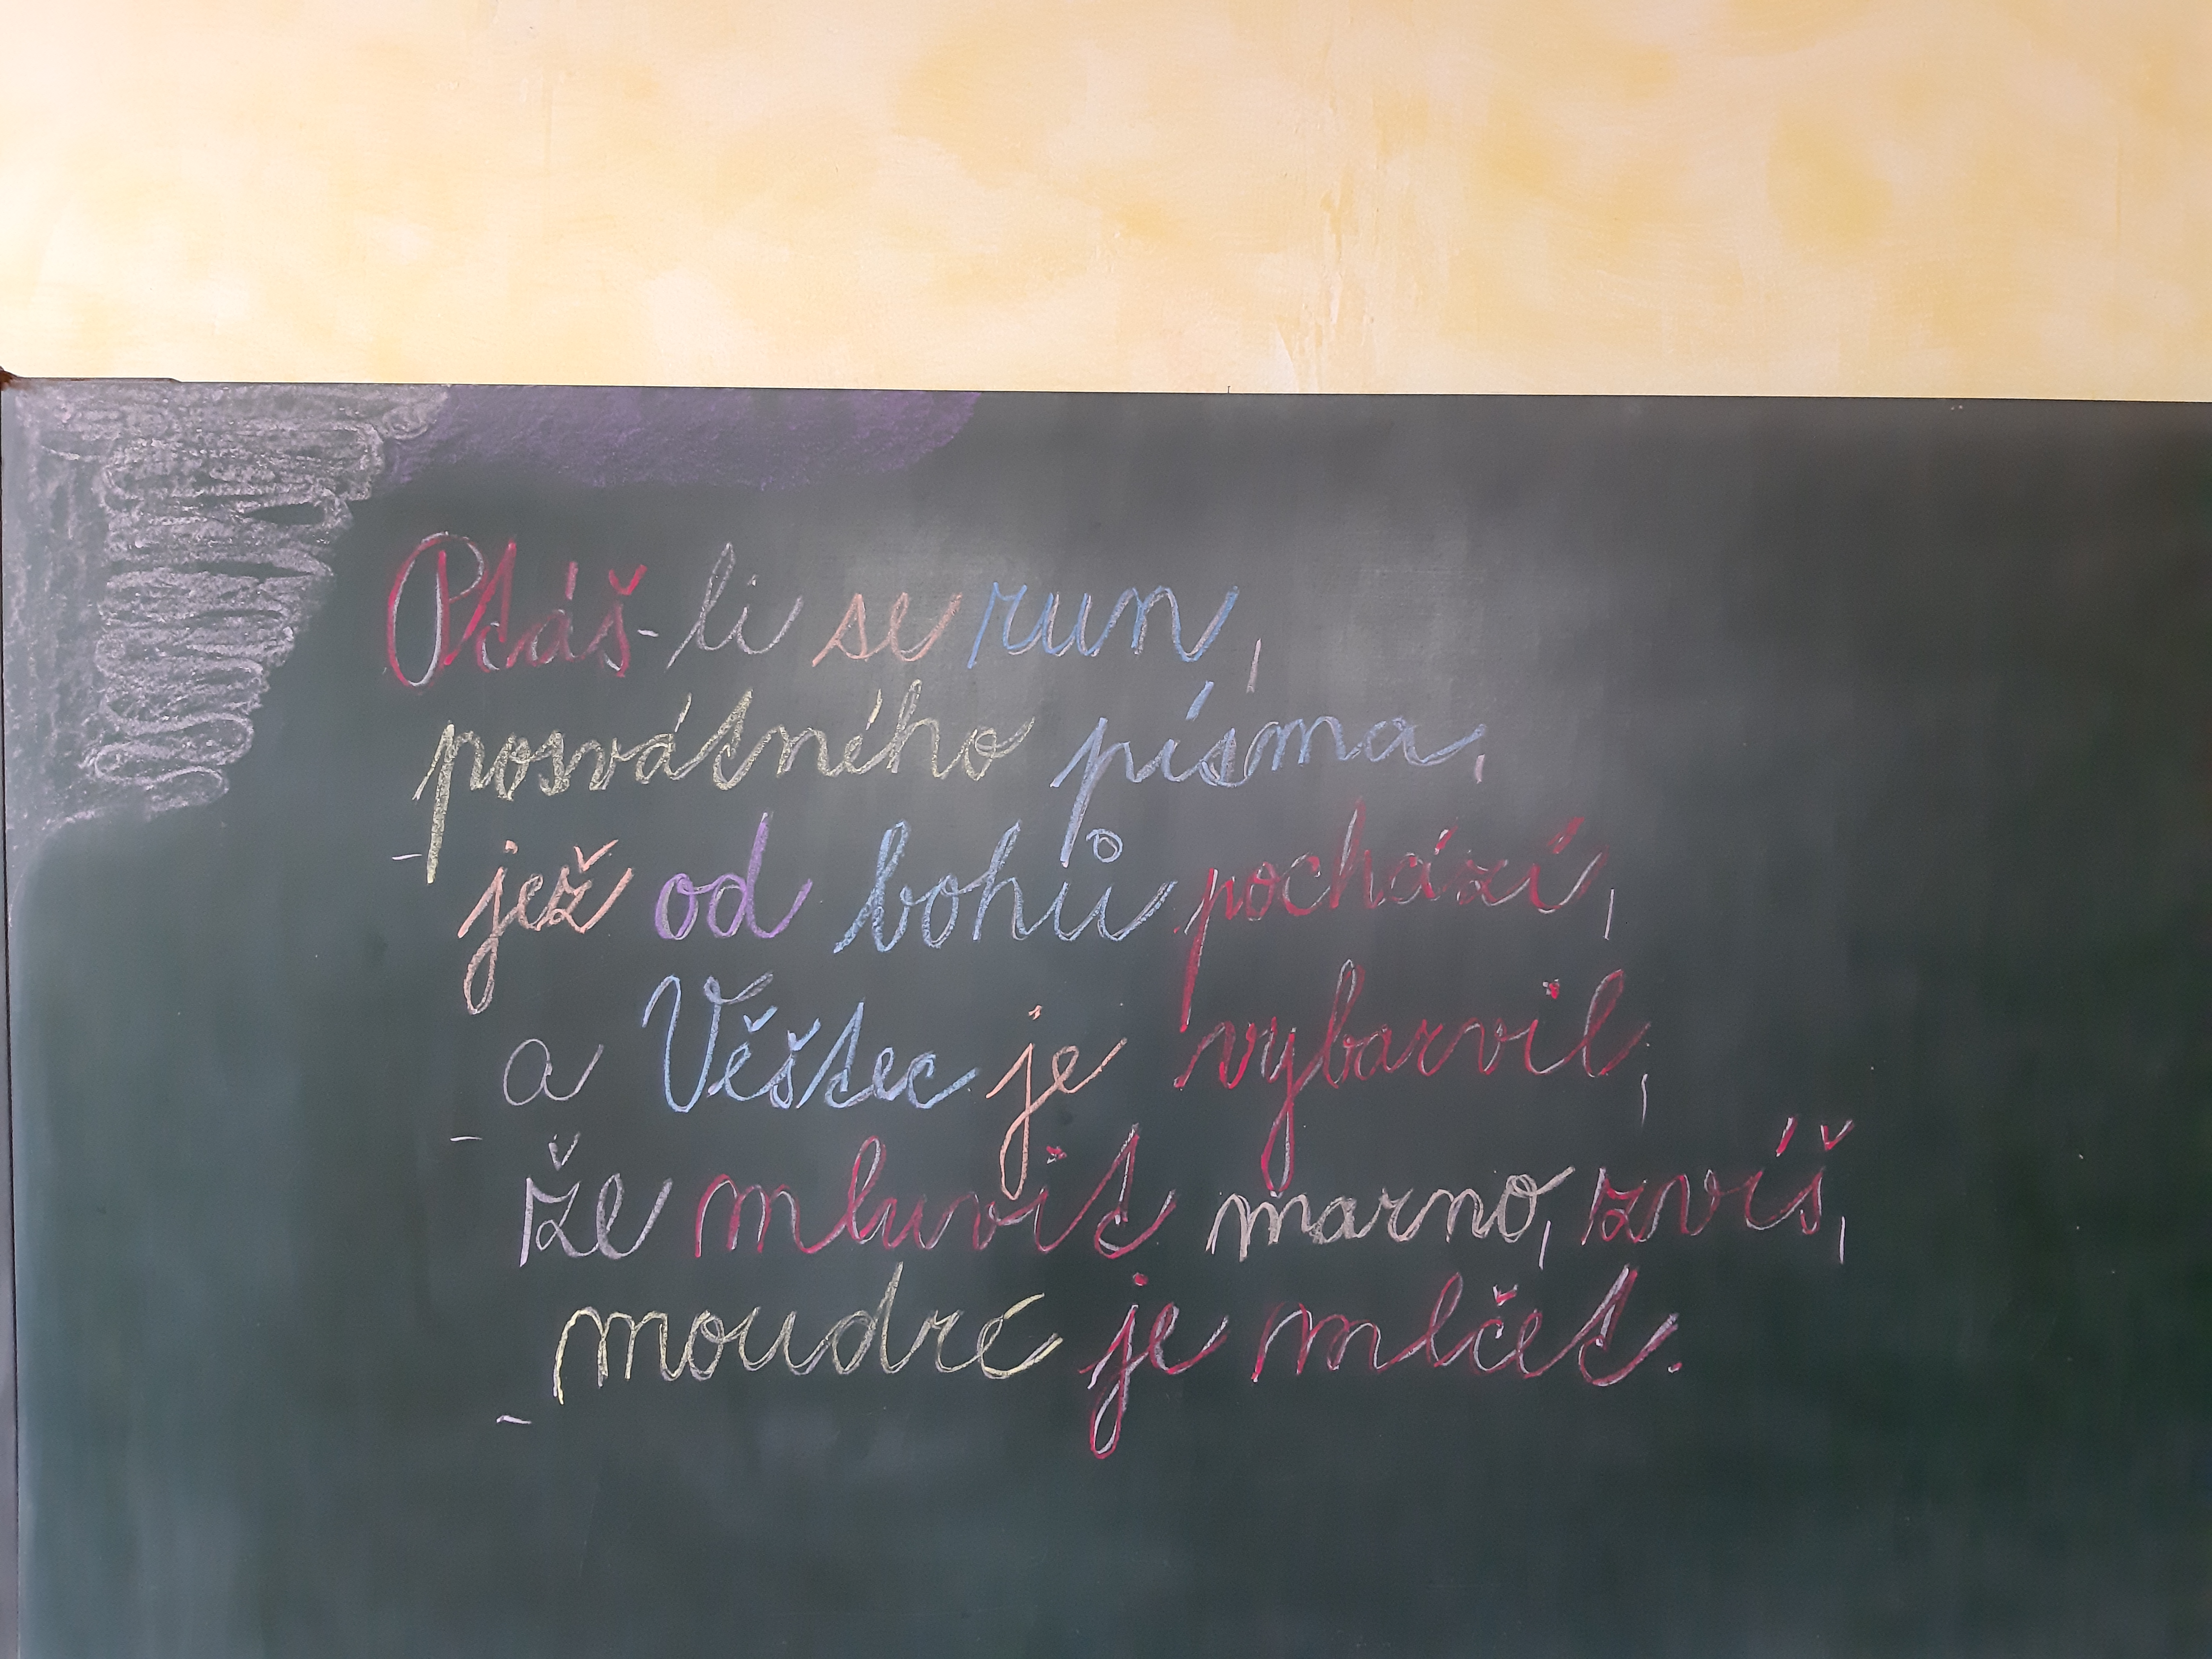 Ptáš-li se run,
posvátného písma,
jež od bohů pochází,
a Věštec je vybarvil,
že mluvit marno, zvíš,
moudré je mlčet.